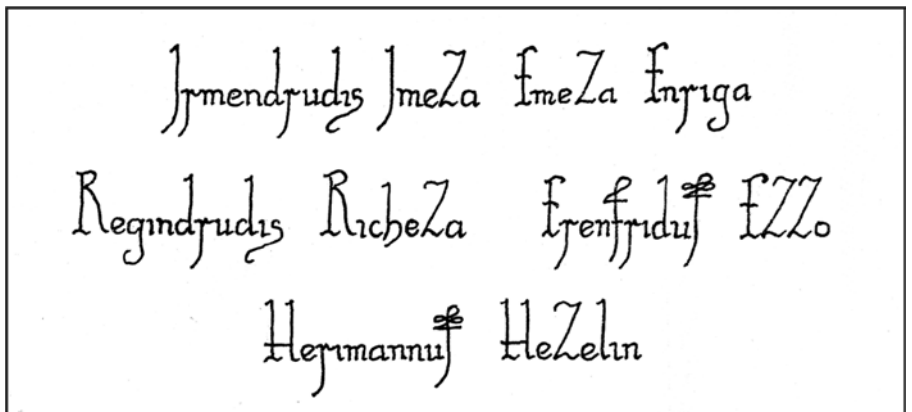 Irmendrudis Imeza Emeza Enriga
Regindrudis Richeza Erenfridus Ezzo
Herimannus Hezelin